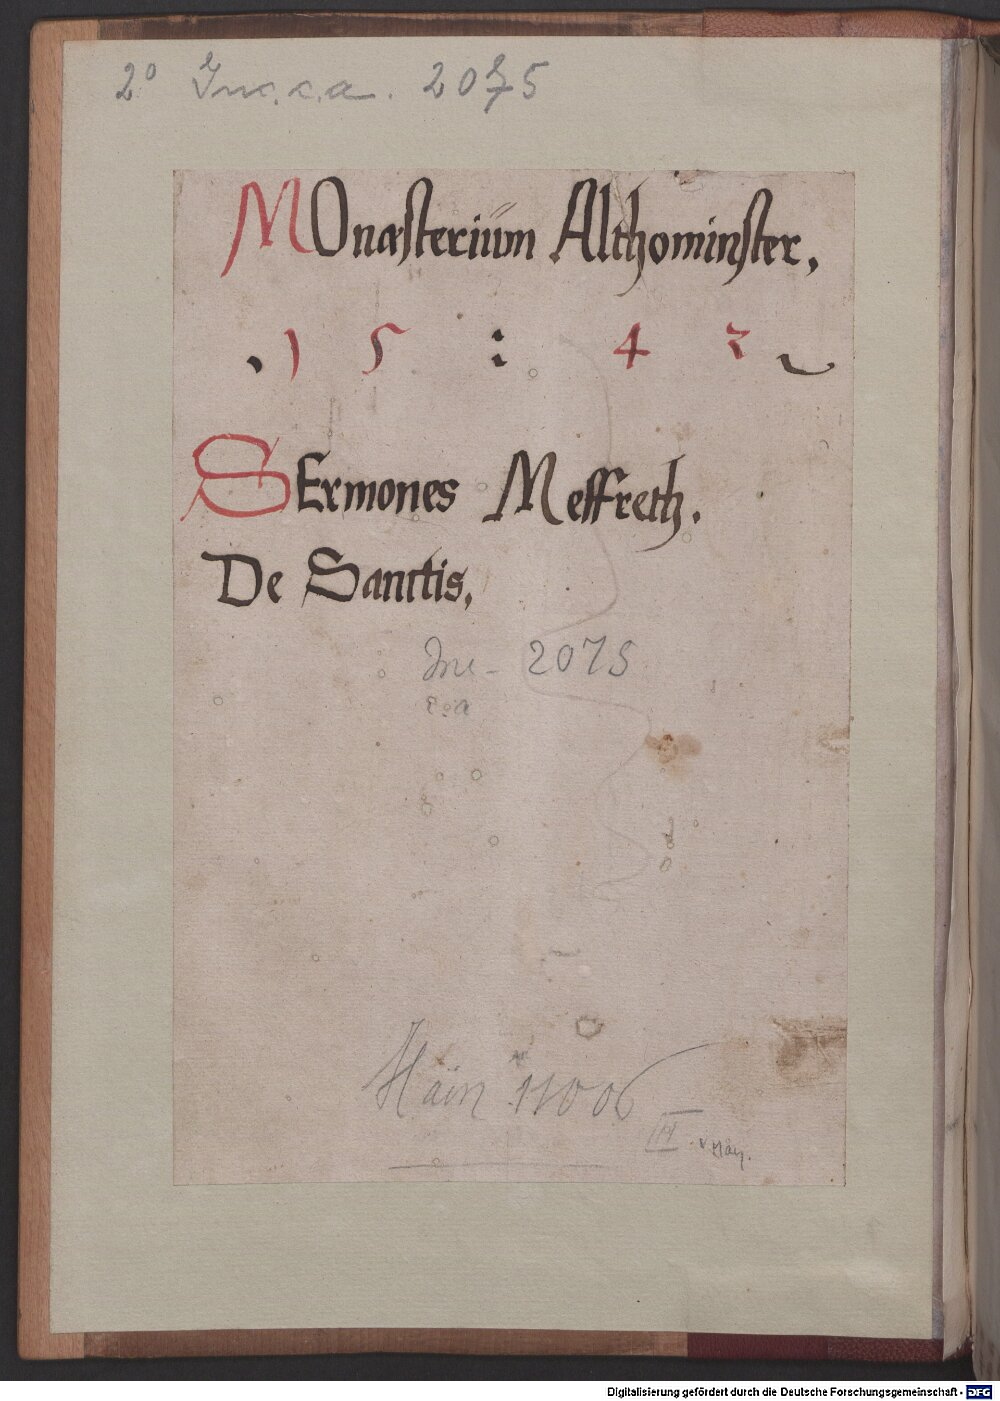 2° Inc. c. a. 2075
MOnasterium Althominster,
15:43
SErmones Meffreth.
De Sanctis,
Inc. 2075
c. a
Hain 11006
III
Digitalisierung gefördert durch die Deutsche Forschungsgemeinschaft - DFG